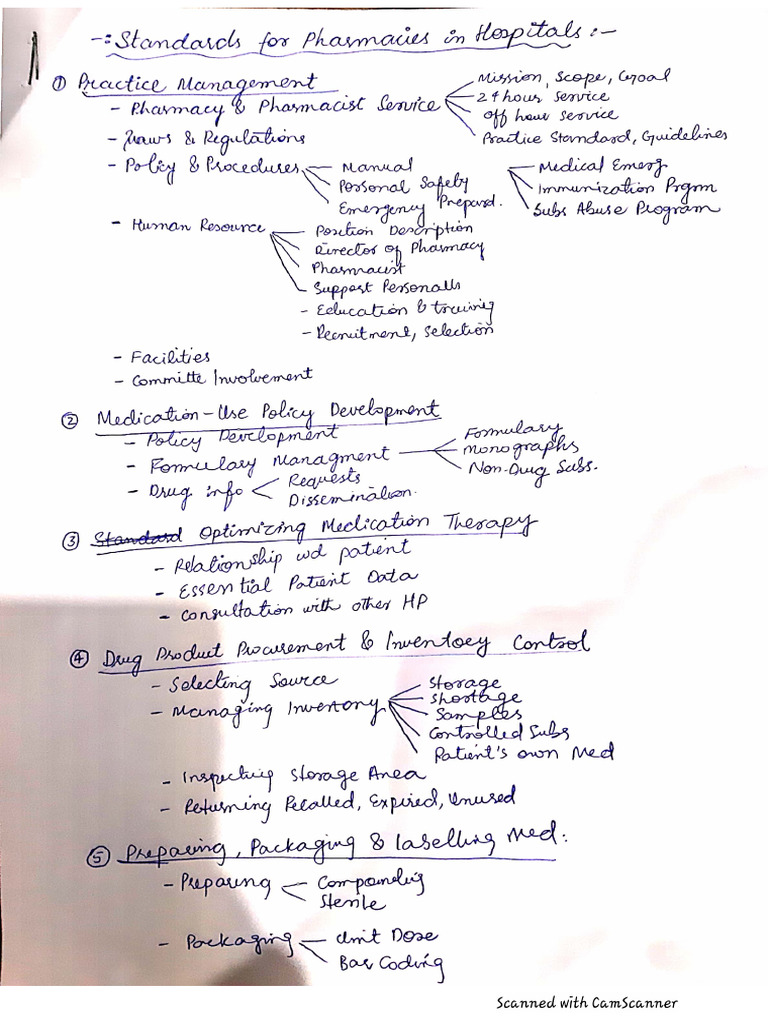 -: Standards for Pharmacies in Hospitals :-
① Practice Management
- Pharmacy & Pharmacist Service
Mission, Scope, Goal
24 hour service
off hour service
Practice Standard, Guidelines
- Laws & Regulations
- Policy & Procedures
Manual
Personal Safety
Emergency Prepard.
Medical Emerg
Immunization Prgm
Subs Abuse Program
- Human Resource
Position Description
Director of Pharmacy
Pharmacist
Support Personalls
- Education & training
- Recruitment, selection
- Facilities
- Committe Involvement
② Medication-Use Policy Development
- Policy Development
- Formulary Managment
Formulary
Monographs
Non-Drug Subs.
- Drug info
Requests
Dissemination.
③ Standard Optimizing Medication Therapy
- Relationship wd patient
- Essential Patient Data
- Consultation with other HP
④ Drug Product Procurement & Inventory Control
- Selecting Source
- Managing Inventory
Storage
Shortage
Samples
Controlled Subs
Patient's own Med
- Inspecting Storage Area
- Returning Recalled, Expired, Unused
⑤ Preparing, Packaging & labelling Med:
- Preparing
Compounding
Sterile
- Packaging
Unit Dose
Bar Coding
Scanned with CamScanner